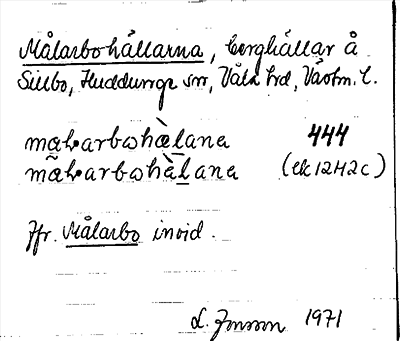 Målarbohällarna, berghällar å
Sillbo, Huddunge sn, Våla hd, Västm. l.
mal.arbωhàlana 444
mãl.arbωhàlana (ek 1242c)
Jfr. Målarbo invid.
L. Jonson 1971